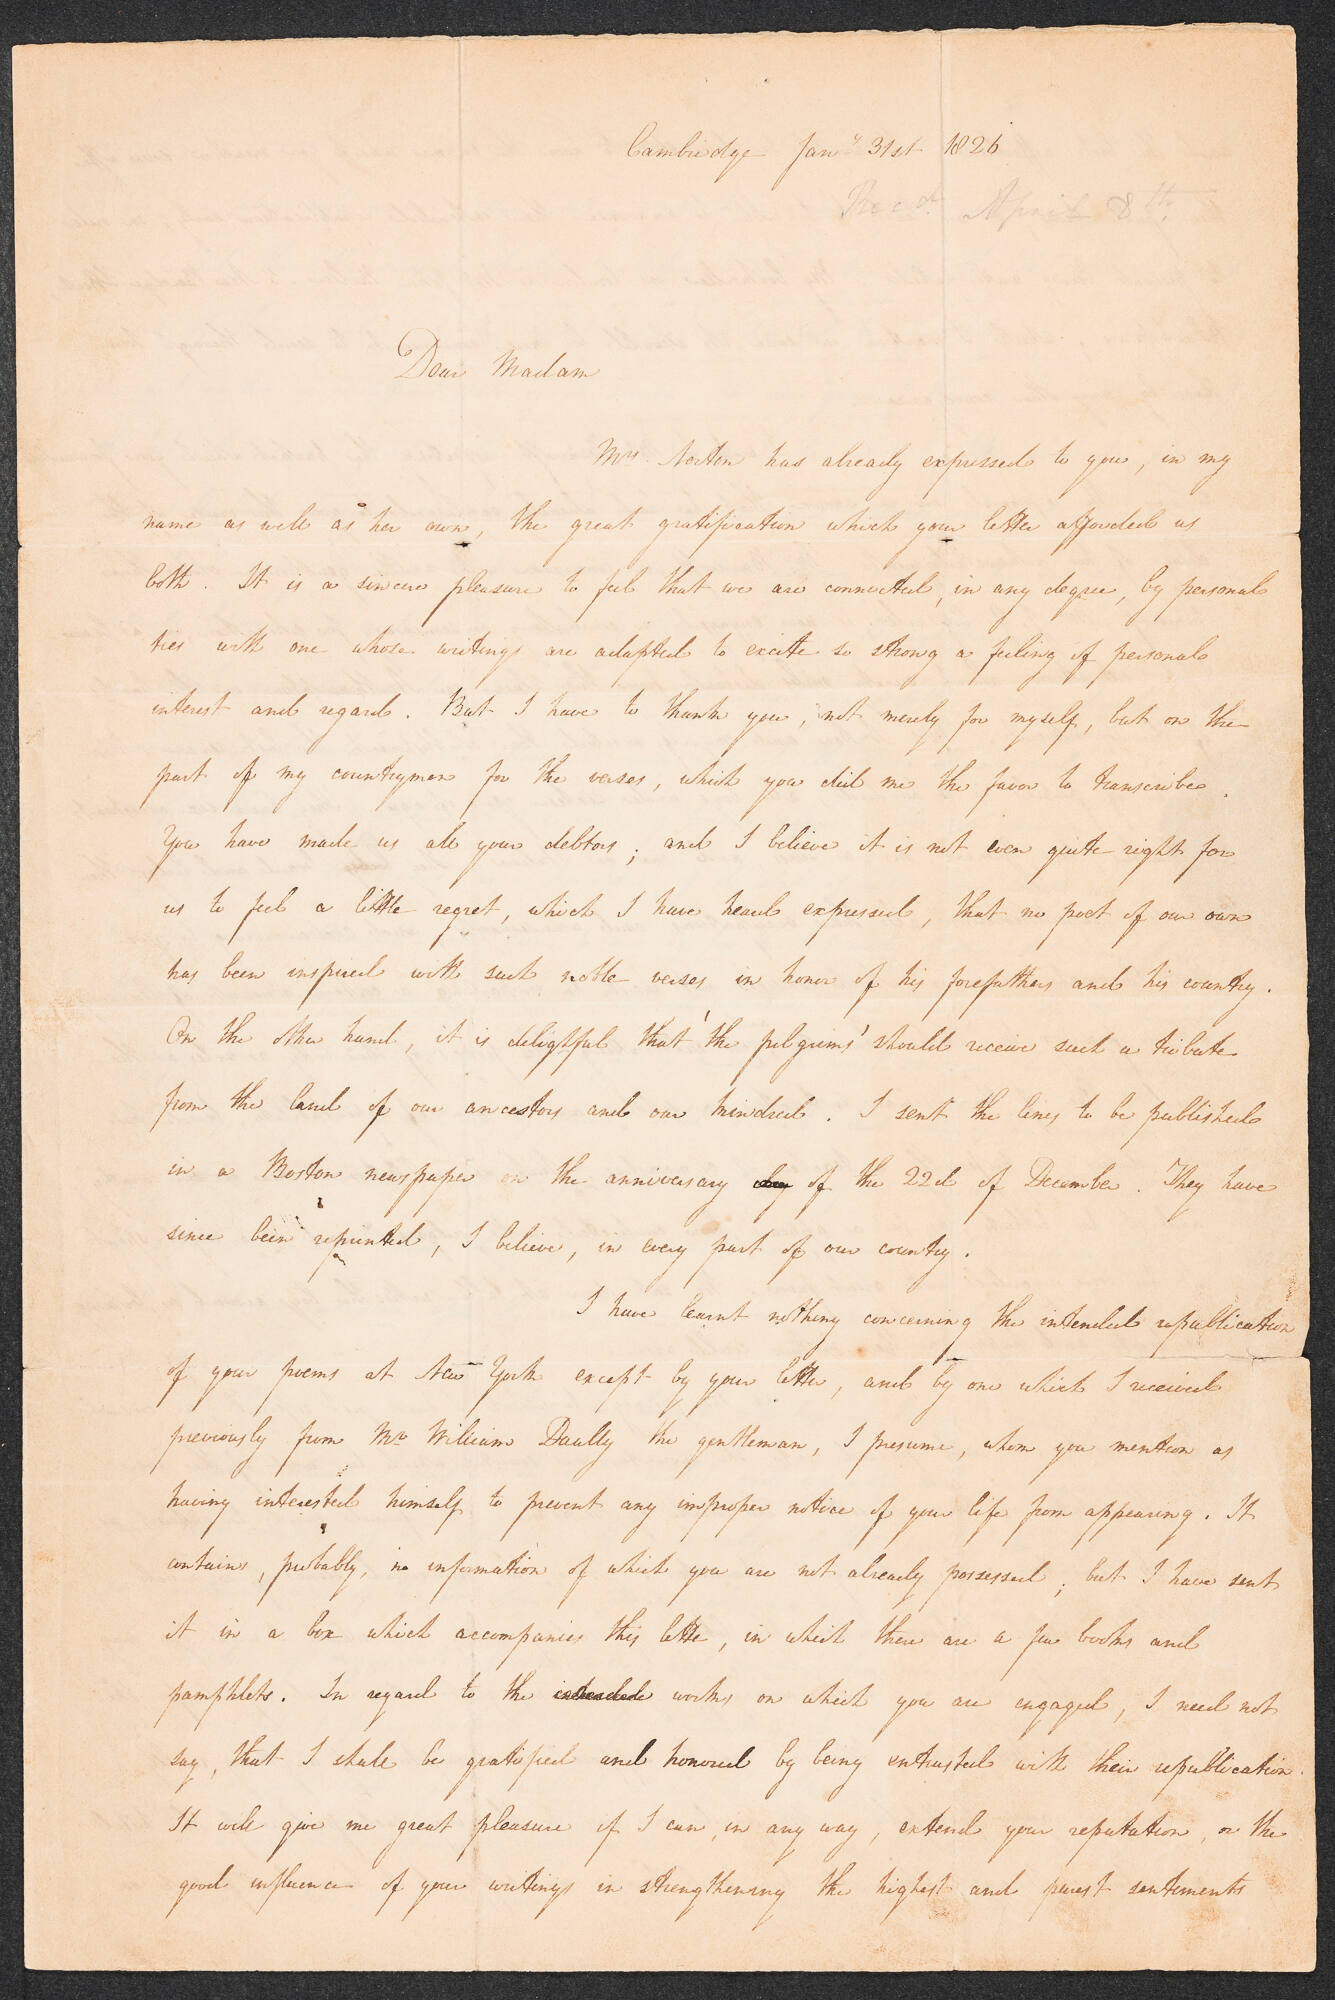 Cambridge Jany 31st 1826
Recd. April 8th.
Dear Madam
Mrs. Norton has already expressed to you, in my
name as well as her own, the great gratification which your letter afforded us
both. It is a sincere pleasure to feel that we are connected, in any degree, by personal
ties with one whose writings are adapted to excite so strong a feeling of personal
interest and regard. But I have to thank you, not merely for myself, but on the
part of my countrymen for the verses, which you did me the favor to transcribe.
You have made us all your debtors; and I believe it is not even quite right for
us to feel a little regret, which I have heard expressed, that no poet of our own
has been inspired with such noble verses in honor of his forefathers and his country.
On the other hand, it is delightful that 'the pilgrims' should receive such a tribute
from the land of our ancestors and our kindred. I sent the lines to be published
in a Boston newspaper on the anniversary day of the 22d of December. They have
since been reprinted, I believe, in every part of our country.
I have learnt nothing concerning the intended republication
of your poems at New York except by your letter, and by one which I received
previously from Mr William the gentleman, I presume, whom you mention as
having interested himself to prevent any improper notice of your life from appearing. It
contains, probably, no information of which you are not already possessed; but I have sent
it in a box which accompanies this letter, in which there are a few books and
pamphlets. In regard to the works on which you are engaged, I need not
say, that I shall be gratified and honored by being entrusted with their republication.
It will give me great pleasure if I can, in any way, extend your reputation, or the
good influence of your writings in strengthening the highest and purest sentiments